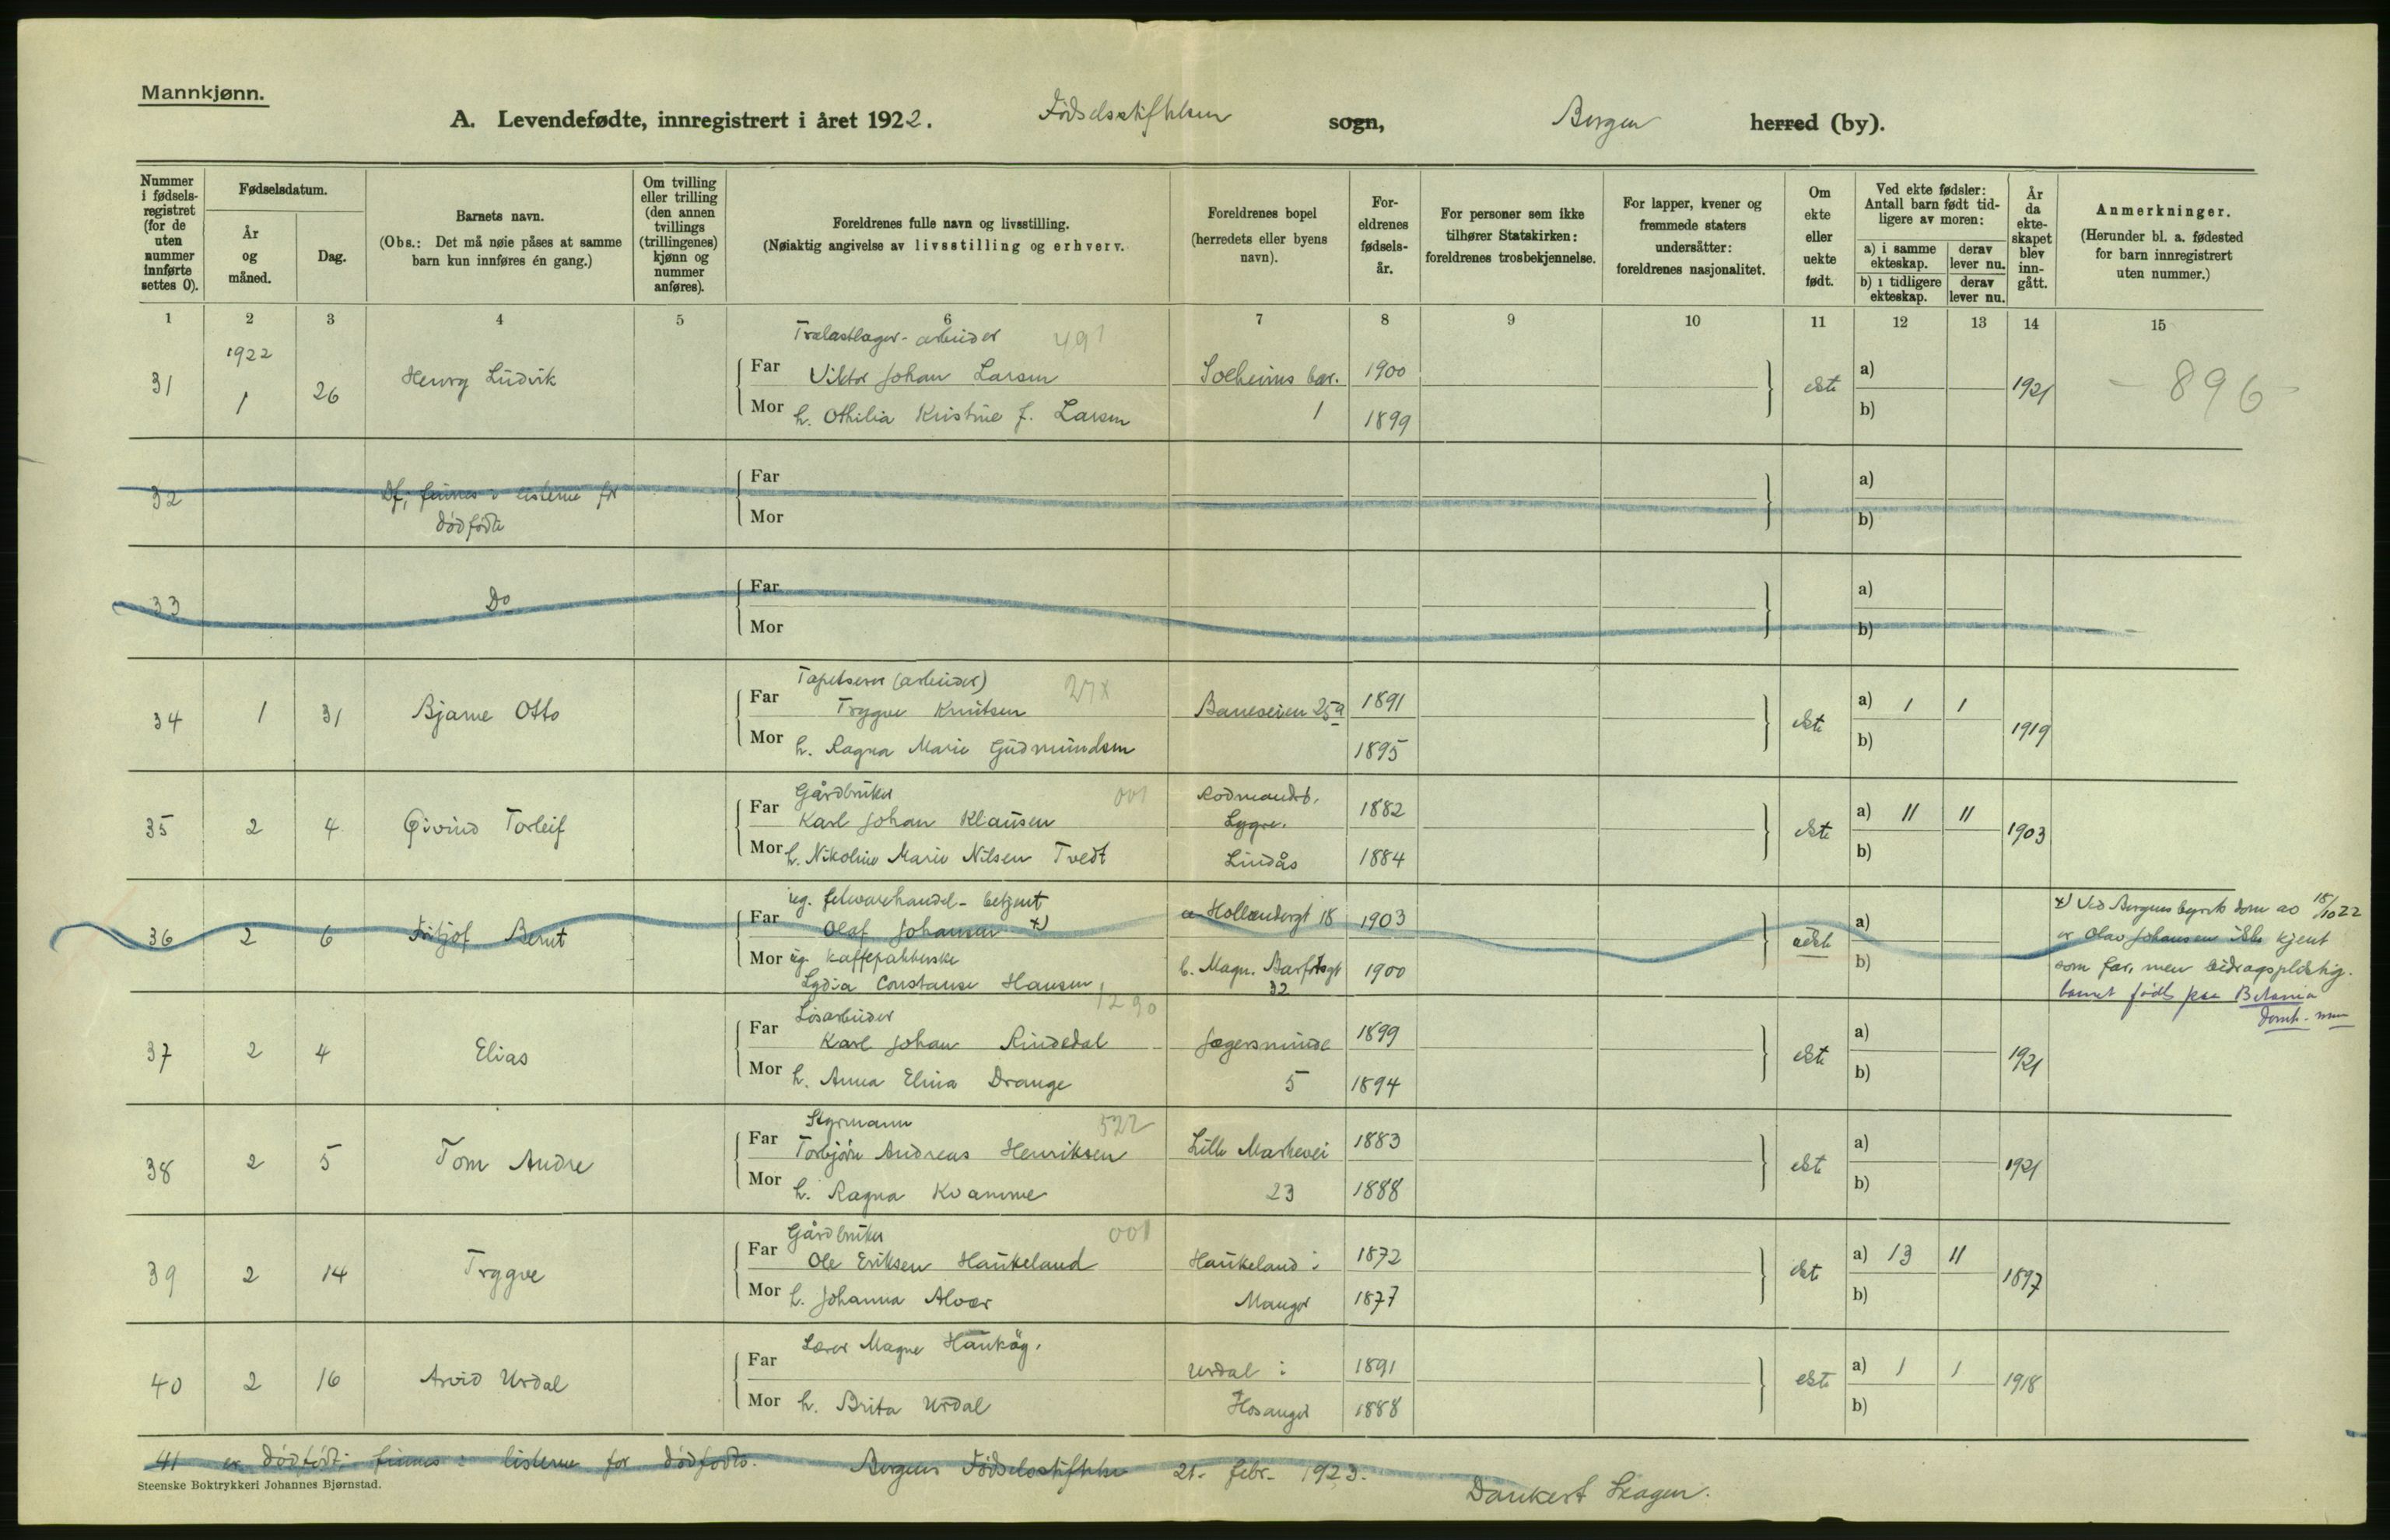 Mannkjønn.
A. Levendefødte, innregistrert i året 1922. Födselsstiftelsen sogn, Bergen herred (by).
Nummer i fødsels-registret (for de uten nummer innførte settes 0).
Fødselsdatum.
År og måned.
Dag.
Barnets navn.
(Obs.: Det må nøie påses at samme barn kun innføres én gang.)
Om tvilling eller trilling (den annen tvillings (trillingenes) kjønn og nummer anføres).
Foreldrenes fulle navn og livsstilling.
(Nøiaktig angivelse av livsstilling og erhverv.
Foreldrenes bopel (herredets eller byens navn).
For-eldrenes fødsels-år.
For personer som ikke tilhører Statskirken: foreldrenes trosbekjennelse.
For lapper, kvener og fremmede staters undersåtter: foreldrenes nasjonalitet.
Om ekte eller uekte født.
Ved ekte fødsler: Antall barn født tid-ligere av moren:
a) i samme ekteskap.
derav lever nu.
b) i tidligere ekteskap.
derav lever nu.
År da ekte-skapet blev inn-gått.
Anmerkninger.
(Herunder bl. a. fødested for barn innregistrert uten nummer.)
1 2 3 4 5 6 7 8 9 10 11 12 13 14 15
1922
Trælastlager-arbeider 491
31 1 26 Henry Ludvik Far Viktor Johan Larsen Solheims 1900 ekte a) 1921 - 896 -
Mor h. Othilia Kristine f. Larsen 1 1899 b)
32 Df, finnes i listerne for dödfödte Far a)
Mor b)
33 Do Far a)
Mor b)
Tapetserer (arbeider) 27x
34 1 31 Bjarne Otto Far Trygve Knutsen Baneveien 25a 1891 ekte a) 1 1 1919
Mor h. Ragna Marie Gudmundsen 1895 b)
Gårdbruker 001
35 2 4 Øivind Torleif Far Karl Johan Klausen Lygre. 1882 ekte a) 11 11 1903
Mor h. Nikoline Marie Nilsen Tvedt Lindås 1884 b)
ug. fetevarehandel-betjent
36 2 6 Fritjof Bernt Far Olaf Johansen x) a Hollendergt 18 1903 uekte a)
Mor ug. kaffepakkerske
Lydia Constanse Hansen b. Magn. Barfotsgt 32 1900 b)
x) Ved Bergens byrets dom av 18/10 22
er Olav Johansen ikke kjent
som far, men bidragspliktig.
barnet födt paa Betania
Lösarbeider 1290
37 2 4 Elias Far Karl Johan Rindedal Jægersminde 1899 ekte a) 1921
Mor h. Anna Elina Drange 5 1894 b)
Styrmann 522
38 2 5 Tom Andre Far Torbjörn Andreas Henriksen Lille Markevei 1883 ekte a) 1921
Mor h. Ragna Kvamme 23 1888 b)
Gårdbruker 001
39 2 14 Tryggve Far Ole Eriksen Haukeland Haukeland i 1872 ekte a) 13 11 1897
Mor h. Johanna Alvær Manger 1877 b)
Lærer Magne Haukög.
40 2 16 Arvid Urdal Far Urdal i 1891 ekte a) 1 1 1918
Mor h. Brita Urdal Hosanger 1888 b)
41 er dödfödt; finnes i listerne for dödfödte. Bergens Födselsstiftelse 21. febr. 1923.
Dankert Skagen.
Steenske Boktrykkeri Johannes Bjørnstad.